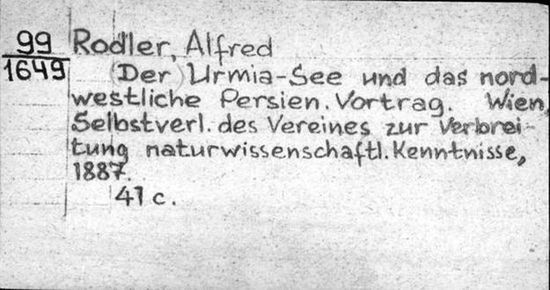 99
1649
Rodler, Alfred
(Der) Urmia-See und das nord-
westliche Persien. Vortrag. Wien,
Selbstverl. des Vereines zur Verbrei-
tung naturwissenschaftl. Kenntnisse,
1887.
41 c.